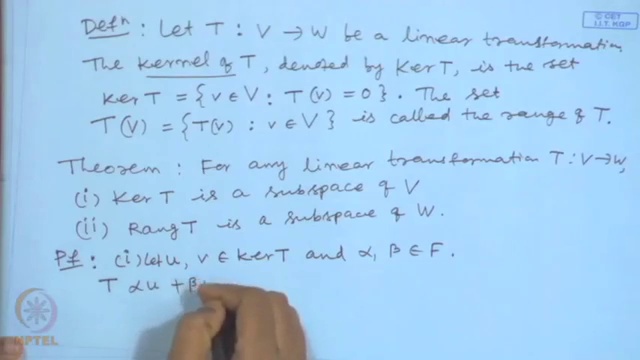 © CET
I.I.T. KGP
Defⁿ : Let T : V → W be a linear transformation
The kernel of T, denoted by Ker T, is the set
Ker T = {v ∈ V : T(v) = 0}. The set
T(V) = {T(v) : v ∈ V} is called the range of T.
Theorem : For any linear transformation T : V → W,
(i) Ker T is a subspace of V
(ii) Rang T is a subspace of W.
Pf : (i) Let u, v ∈ Ker T and α, β ∈ F.
T αu + β
NPTEL